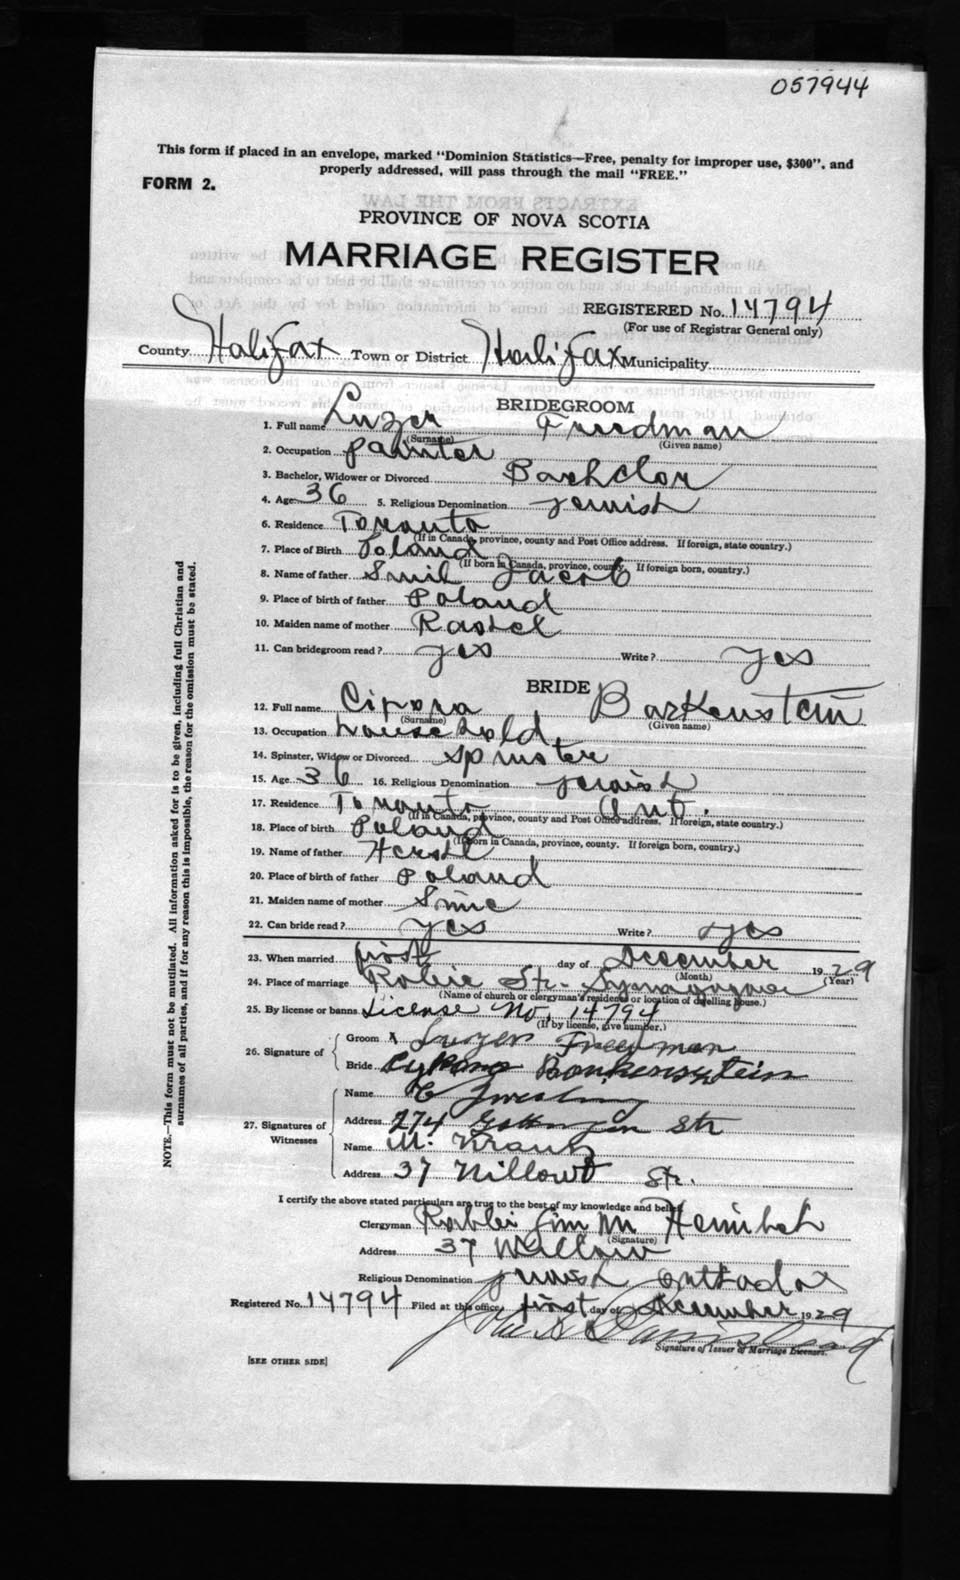 057944
This form if placed in an envelope, marked "Dominion Statistics—Free, penalty for improper use, $300", and
properly addressed, will pass through the mail "FREE."
FORM 2.
PROVINCE OF NOVA SCOTIA
MARRIAGE REGISTER
REGISTERED No. 14794
(For use of Registrar General only)
County Halifax Town or District Halifax Municipality
BRIDEGROOM
1. Full name Luzer Friedman
(Surname) (Given name)
2. Occupation painter
3. Bachelor, Widower or Divorced Bachelor
4. Age 36 5. Religious Denomination Jewish
6. Residence Toronto
(If in Canada, province, county and Post Office address. If foreign, state country.)
7. Place of Birth Poland
(If born in Canada, province, county. If foreign born, country.)
8. Name of father Smil Jacob
9. Place of birth of father Poland
10. Maiden name of mother Rastel
11. Can bridegroom read? yes Write? yes
BRIDE
12. Full name Cipora Barkenstein
(Surname) (Given name)
13. Occupation household
14. Spinster, Widow or Divorced spinster
15. Age 36 16. Religious Denomination jewish
17. Residence Toronto Ont.
(If in Canada, province, county and Post Office address. If foreign, state country.)
18. Place of birth Poland
(If born in Canada, province, county. If foreign born, country.)
19. Name of father Hersh
20. Place of birth of father Poland
21. Maiden name of mother Sime
22. Can bride read? yes Write? yes
23. When married first day of December 1929
(Month) (Year)
24. Place of marriage Robie Str. Synagogue
(Name of church or clergyman's residence or location of dwelling house.)
25. By license or banns License No. 14794
(If by license, give number.)
26. Signature of
Groom X Luzer Freedman
Bride Bonkenstein
27. Signatures of Witnesses
Name
Address 274 Gottingen Str
Name M. Krantz
Address 37 Willow Str.
I certify the above stated particulars are true to the best of my knowledge and belief.
Clergyman Rabbi
(Signature)
Address 37 Willow
Religious Denomination jewish orthadox
Registered No. 14794 Filed at this office, first day of December 1929
Signature of Issuer of Marriage Licenses.
[SEE OTHER SIDE]
NOTE.—This form must not be mutilated. All information asked for is to be given, including full Christian and
surnames of all parties, and if for any reason this is impossible, the reason for the omission must be stated.